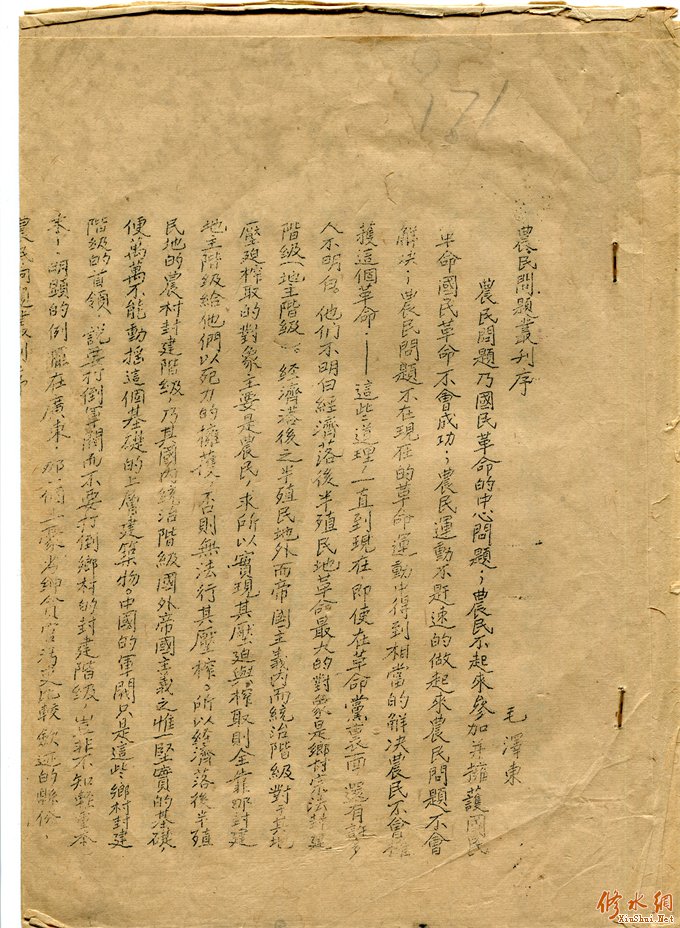 171
農民問題叢刊序
毛澤東
農民問題乃國民革命的中心問題；農民不起來參加并擁護國民
革命國民革命不會成功；農民運動不趕速的做起來農民問題不會
解決；農民問題不在現在的革命運動中得到相當的解決農民不會擁
護這個革命。——這些道理，一直到現在，即使在革命黨裏面還有許多
人不明白。他們不明白經濟落後半殖民地革命最大的對象是鄉村宗法封建
階級（地主階級）。經濟落後之半殖民地外而帝國主義內而統治階級對其地
壓迫榨取的對象主要是農民，求所以實現其壓迫與榨取則全靠那封建
地主階級給他們以死力的擁護，否則無法行其壓榨。所以經濟落後半殖
民地的農村封建階級，乃其國內統治階級國外帝國主義之惟一堅實的基礎，
便萬萬不能動搖這個基礎的上層建築物。中國的軍閥只是這些鄉村封建
階級的首領，說要打倒軍閥而不要打倒鄉村的封建階級豈非不知輕重本
末，明顯的例擺在廣東那個土豪劣紳貪官污吏比較歛迹的縣份，
農民問題叢刊序
修水網
XiuShui.Net